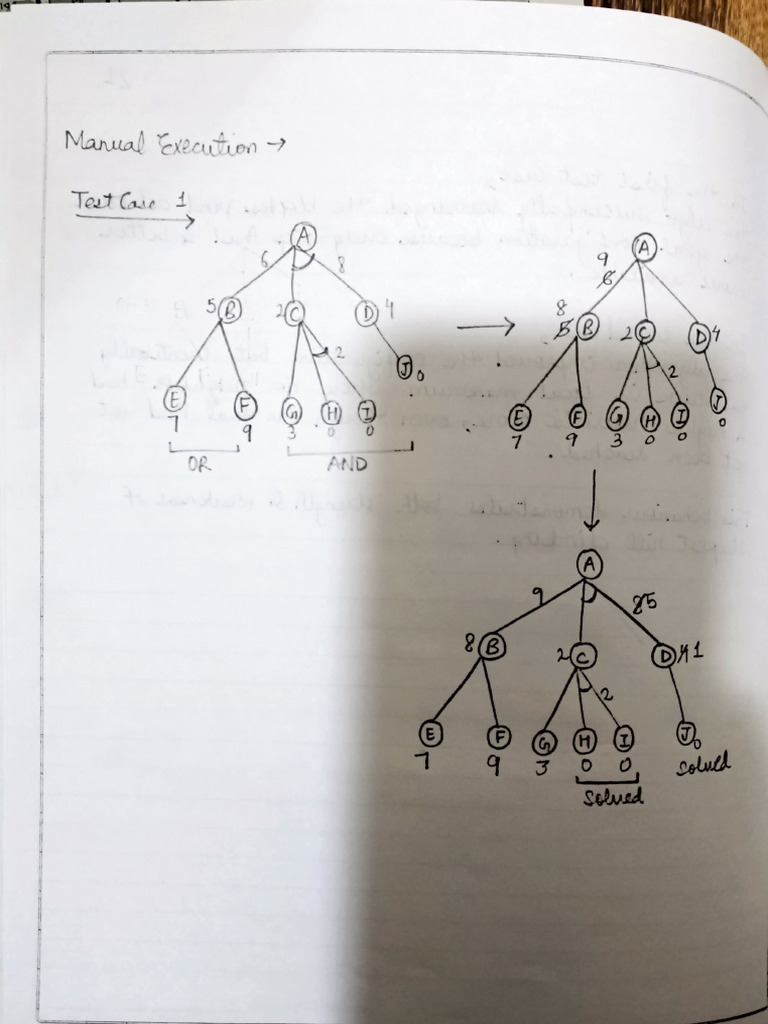 Manual Execution →
Test Case 1
A
6 8
5 B 2 C D 4
2
J 0
E F G H I
7 9 3 0 0
OR AND
A
9
6
8
5 B 2 C D 4
2
E F G H I J
7 9 3 0 0 0
A
9 8 5
8 B 2 C D 4 1
2
E F G H I J 0
7 9 3 0 0 solved
solved